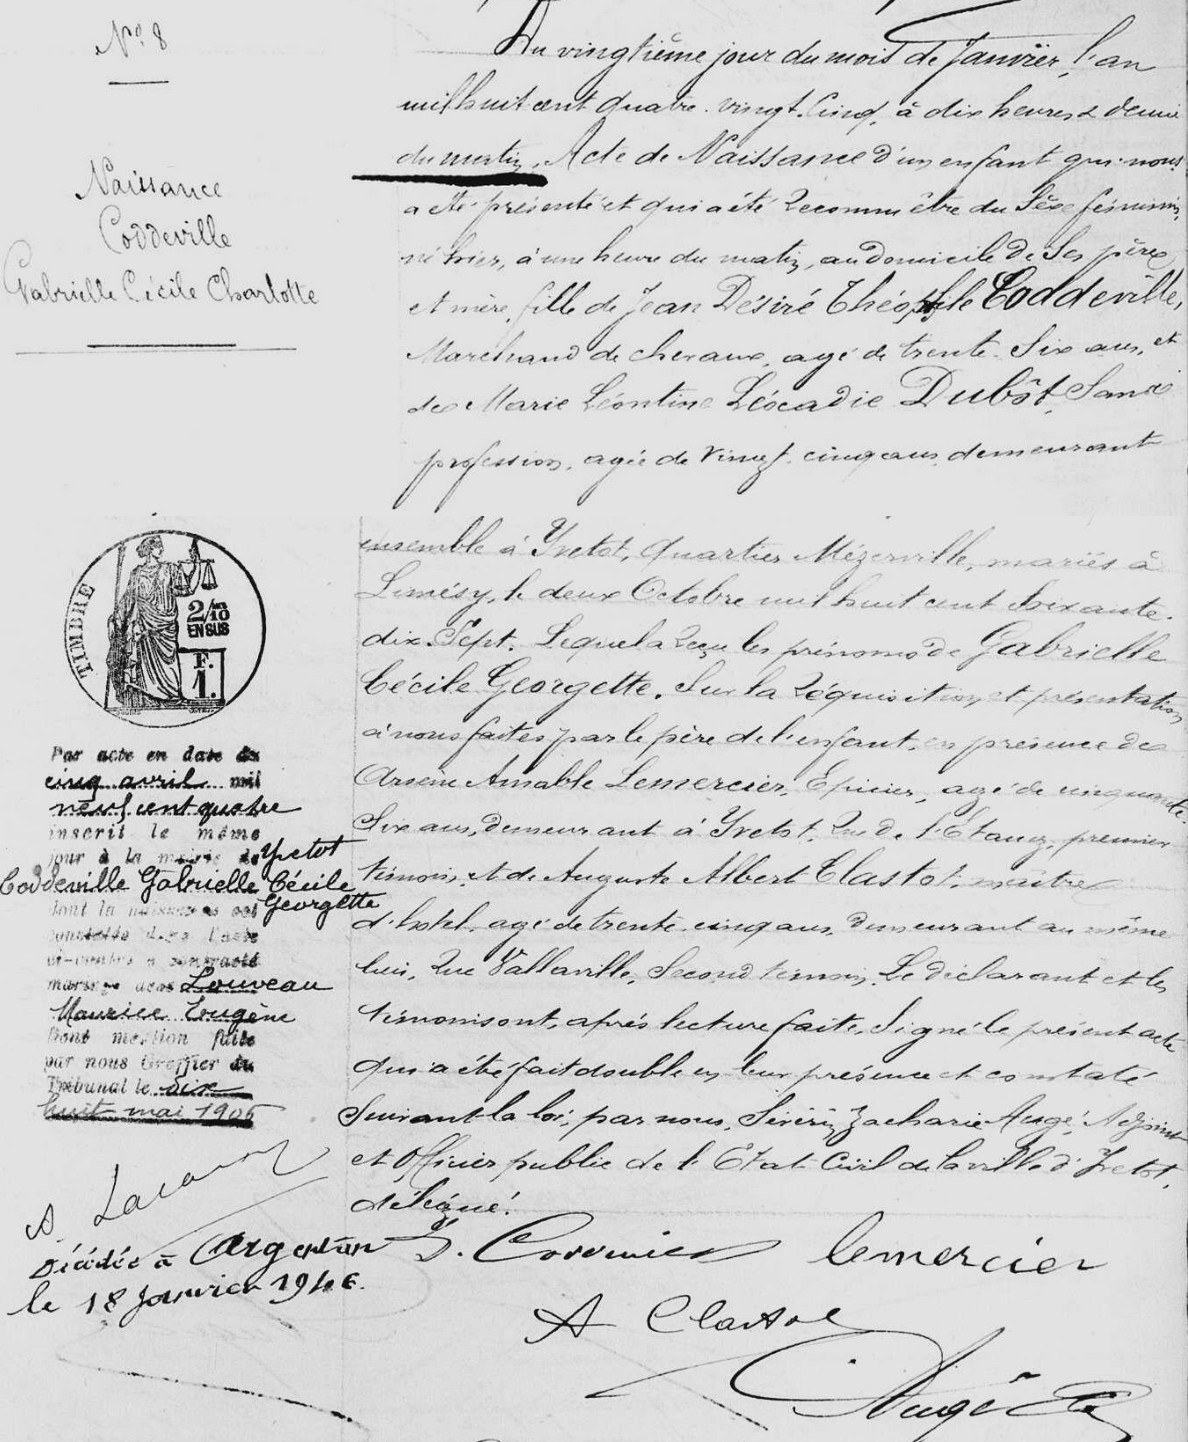 Nº 8
Naissance
Coddeville
Gabrielle Cécile Charlotte
Du vingtième jour du mois de Janvier, l'an
mil huit cent quatre-vingt-cinq, à dix heures & demie
du matin, Acte de Naissance d'un enfant qui nous
a été présenté et qui a été reconnu être du sexe féminin,
né hier, à une heure du matin, au domicile de ses père
et mère, fille de Jean Désiré Théophile Coddeville,
Marchand de chevaux, agé de trente-six ans, et
de Marie Léontine Léocadie Dubôt, sans
profession, agée de vingt-cinq ans, demeurant
ensemble à Yvetot, quartier Mézerville, mariés à
Limésy, le deux Octobre mil huit cent soixante-
dix-sept. Lequel a reçu les prénoms de Gabrielle
Cécile Georgette. Sur la réquisition et présentation
à nous faites par le père de l'enfant, en présence de
Arsène Amable Lemercier, Epicier, agé de cinquante-
six ans, demeurant à Yvetot, rue de l'Etang, premier
témoin, et de Auguste Albert Clastot, maître
d'hotel, agé de trente-cinq ans, demeurant au même
lieu, rue Vallaville, second témoin. Le déclarant et les
témoins ont, après lecture faite, signé le présent acte
qui a été fait double en leur présence et constaté
suivant la loi, par nous, Séverin Zacharie Augé, Adjoint
et Officier public de l'Etat-Civil de la ville d'Yvetot,
délégué.
Lemercier
A Clastot
Augé
TIMBRE
2/10
EN SUS
F.
1.
Par acte en date du
cinq avril mil
neuf cent quatre
inscrit le même
jour à la mairie de Yvetot
Coddeville Gabrielle Cécile
Georgette
dont la naissance est
constatée dans l'acte
ci-contre a contracté
mariage avec Louveau
Maurice Eugène
Dont mention faite
par nous Greffier du
Tribunal le dix
huit mai 1906
Décédée à Argentan
le 18 Janvier 1946.